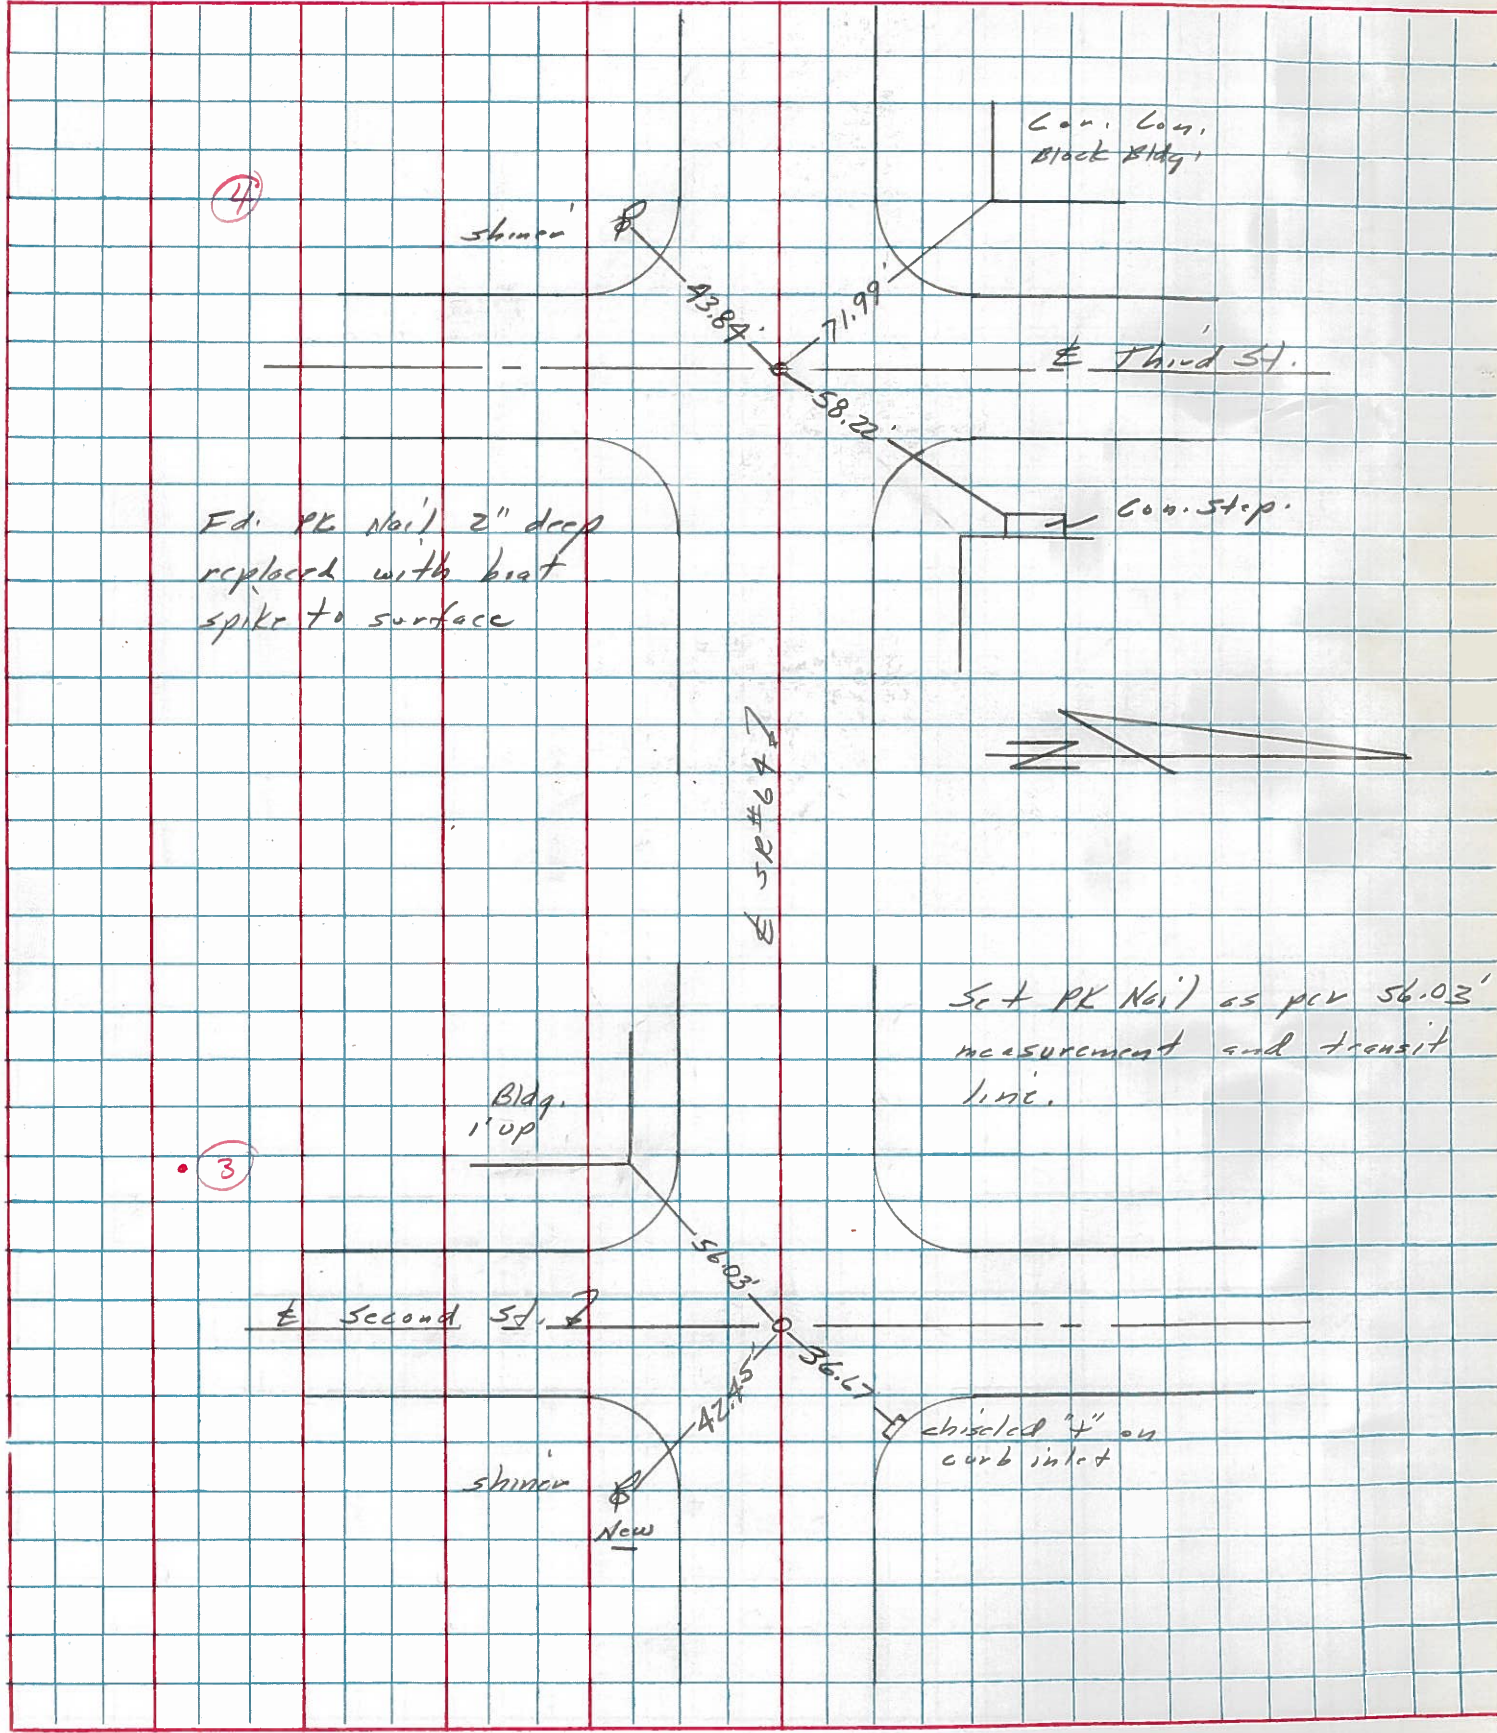 Cor. Con.
Block Bldg.
4
shiner
43.84'
71.99'
℄ Third St.
58.22'
Con. Step.
Fd. PK Nail 2" deep
replaced with boat
spike to surface
N
℄ SR#647
Set PK Nail as per 56.03'
measurement and transit
line.
Bldg.
1' up
3
56.03'
℄ Second St.
36.67
42.45'
chiseled "+" on
curb inlet
shiner
New